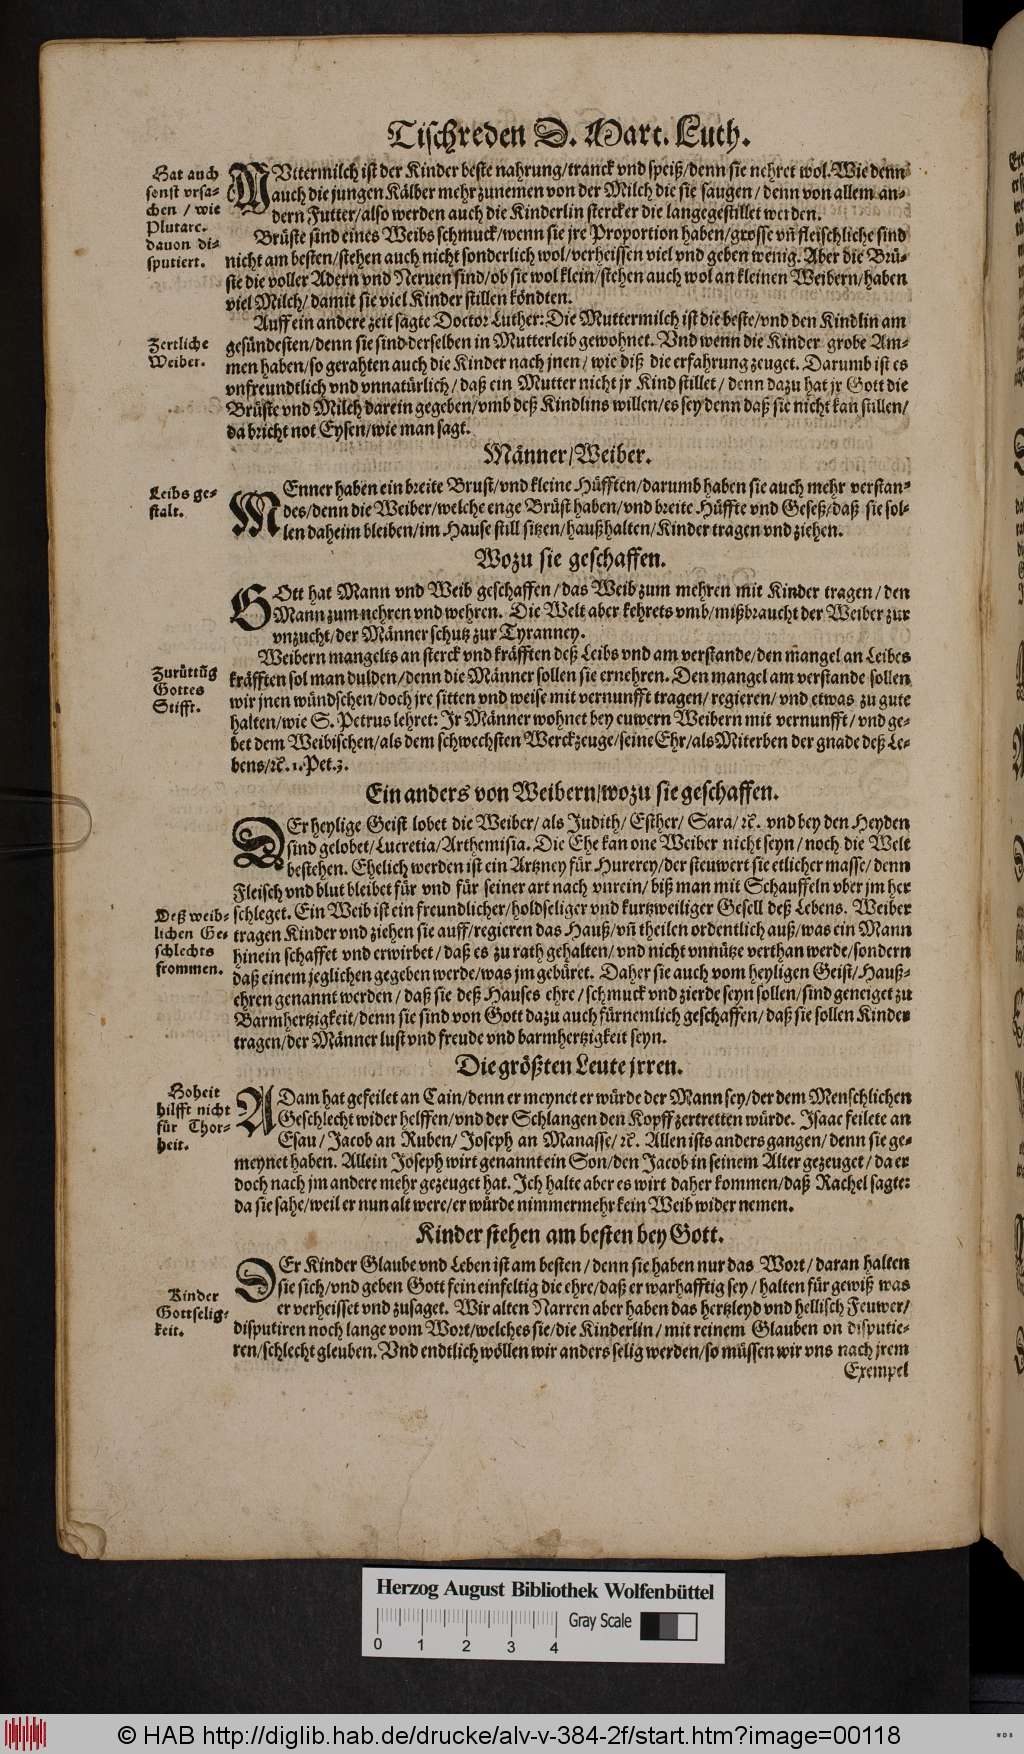 Tischreden D. Mart. Luth.
Hat auch
sonst vrsa-
chen / wie
Plutarc.
dauon di-
sputiert.
MVttermilch ist der Kinder beste nahrung/tranck vnd speiß/denn sie nehret wol. Wie denn
auch die jungen Kälber mehr zunemen von der Milch die sie saugen / denn von allem an-
dern Futter/also werden auch die Kinderlin stercker die lange gestillet werden.
Brüste sind eines Weibs schmuck/wenn sie jre Proportion haben/grosse vñ fleischliche sind
nicht am besten/stehen auch nicht sonderlich wol/verheissen viel vnd geben wenig. Aber die Brü-
ste die voller Adern vnd Neruen sind/ob sie wol klein/stehen auch wol an kleinen Weibern/haben
viel Milch/ damit sie viel Kinder stillen köndten.
Auff ein andere zeit sagte Doctor Luther: Die Muttermilch ist die beste/vnd den Kindlin am
Zertliche
Weiber.
gesündesten/denn sie sind derselben in Mutterleib gewohnet. Vnd wenn die Kinder grobe Am-
men haben/so gerahten auch die Kinder nach jnen / wie diß die erfahrung zeuget. Darumb ist es
vnfreundtlich vnd vnnatürlich / daß ein Mutter nicht jr Kind stillet / denn dazu hat jr Gott die
Brüste vnd Milch darein gegeben/vmb deß Kindlins willen/es sey denn daß sie nicht kan stillen/
da bricht not Eysen/wie man sagt.
Männer/Weiber.
Leibs ge-
stalt.
MEnner haben ein breite Brust/vnd kleine Hüfften/darumb haben sie auch mehr verstan-
des/denn die Weiber/welche enge Brüst haben/vnd breite Hüffte vnd Geseß/daß sie sol-
len daheim bleiben/im Hause still sitzen/haußhalten/Kinder tragen vnd ziehen.
Wozu sie geschaffen.
GOtt hat Mann vnd Weib geschaffen/das Weib zum mehren mit Kinder tragen/den
Mann zum nehren vnd wehren. Die Welt aber kehrets vmb/mißbraucht der Weiber zur
vnzucht/der Männer schutz zur Tyranney.
Weibern mangelts an sterck vnd kräfften deß Leibs vnd am verstande/den mangel an Leibes
Zurüttũg
Gottes
Stifft.
kräfften sol man dulden/denn die Männer sollen sie ernehren. Den mangel am verstande sollen
wir jnen wündschen/doch jre sitten vnd weise mit vernunfft tragen/ regieren/ vnd etwas zu gute
halten/wie S. Petrus lehret: Jr Männer wohnet bey euwern Weibern mit vernunfft/ vnd ge-
bet dem Weibischen/als dem schwechsten Werckzeuge/seine Ehr/als Miterben der gnade deß Le-
bens/ꝛc. 1. Pet. 3.
Ein anders von Weibern/wozu sie geschaffen.
DEr heylige Geist lobet die Weiber/ als Judith/ Esther/ Sara/ ꝛc. vnd bey den Heyden
sind gelobet/Lucretia/Arthemisia. Die Ehe kan one Weiber nicht seyn/noch die Welt
bestehen. Ehelich werden ist ein Artzney für Hurerey/der steuwert sie etlicher masse/ denn
Fleisch vnd blut bleibet für vnd für seiner art nach vnrein/ biß man mit Schauffeln vber jm her
Deß weib-
lichen Ge-
schlechts
frommen.
schleget. Ein Weib ist ein freundlicher/holdseliger vnd kurtzweiliger Gesell deß Lebens. Weiber
tragen Kinder vnd ziehen sie auff/regieren das Hauß/vñ theilen ordentlich auß/was ein Mann
hinein schaffet vnd erwirbet/ daß es zu rath gehalten/ vnd nicht vnnütze verthan werde/sondern
daß einem jeglichen gegeben werde/was jm gebüret. Daher sie auch vom heyligen Geist/Hauß-
ehren genannt werden / daß sie deß Hauses ehre / schmuck vnd zierde seyn sollen/sind geneiget zu
Barmhertzigkeit/denn sie sind von Gott dazu auch fürnemlich geschaffen/ daß sie sollen Kinder
tragen/der Männer lust vnd freude vnd barmhertzigkeit seyn.
Die größten Leute jrren.
Hoheit
hilfft nicht
für Thor-
heit.
ADam hat gefeilet an Cain/denn er meynet er würde der Mann sey/der dem Menschlichen
Geschlecht wider helffen/vnd der Schlangen den Kopff zertretten würde. Isaac feilete an
Esau / Jacob an Ruben/ Joseph an Manasse/ ꝛc. Allen ists anders gangen/ denn sie ge-
meynet haben. Allein Joseph wirt genannt ein Son/den Jacob in seinem Alter gezeuget / da er
doch nach jm andere mehr gezeuget hat. Ich halte aber es wirt daher kommen/daß Rachel sagte:
da sie sahe/weil er nun alt were/er würde nimmermehr kein Weib wider nemen.
Kinder stehen am besten bey Gott.
DEr Kinder Glaube vnd Leben ist am besten / denn sie haben nur das Wort/ daran halten
Kinder
Gottselig-
keit.
sie sich/vnd geben Gott fein einfeltig die ehre/daß er warhafftig sey / halten für gewiß was
er verheisset vnd zusaget. Wir alten Narren aber haben das hertzleyd vnd hellisch Feuwer/
disputiren noch lange vom Wort/welches sie/die Kinderlin / mit reinem Glauben on disputie-
ren/schlecht gleuben. Vnd endtlich wöllen wir anders selig werden/so müssen wir vns nach jrem
Exempel
Herzog August Bibliothek Wolfenbüttel
Gray Scale
0 1 2 3 4
© HAB http://diglib.hab.de/drucke/alv-v-384-2f/start.htm?image=00118